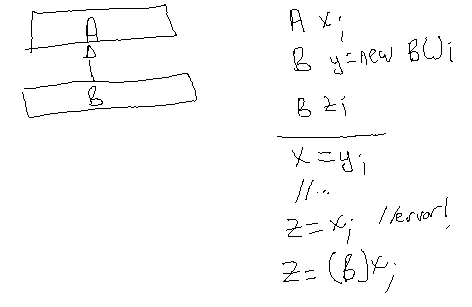 A
B
A x;
B y=new B();
B z;
x=y;
//...
z=x; //error!
z=(B)x;